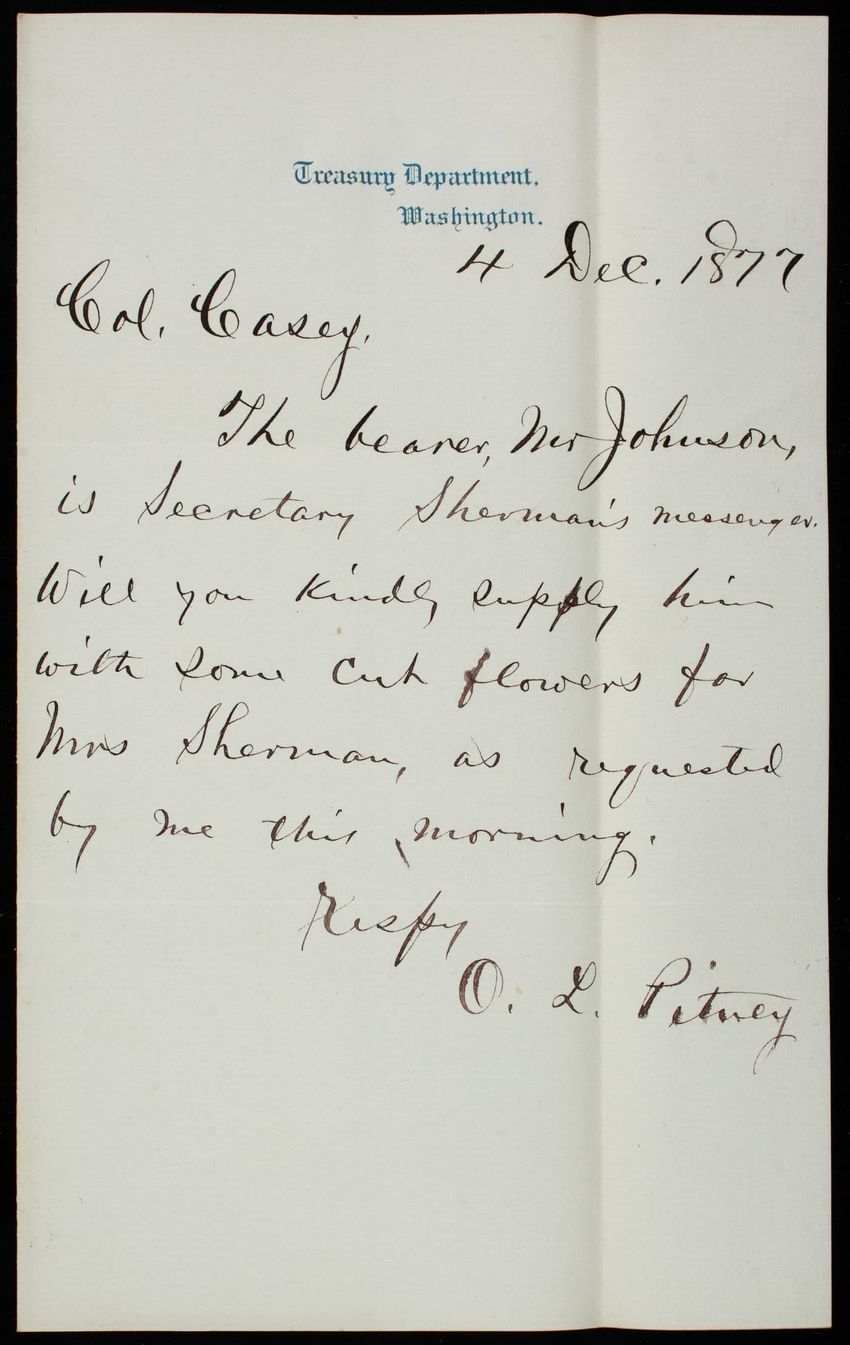 Treasury Department,
Washington.
4 Dec. 1877
Col. Casey,
The bearer, Mr Johnson,
is Secretary Sherman's messenger.
Will you kindly supply him
with some cut flowers for
Mrs Sherman, as requested
by me this morning.
Respy
O. L. Pitney